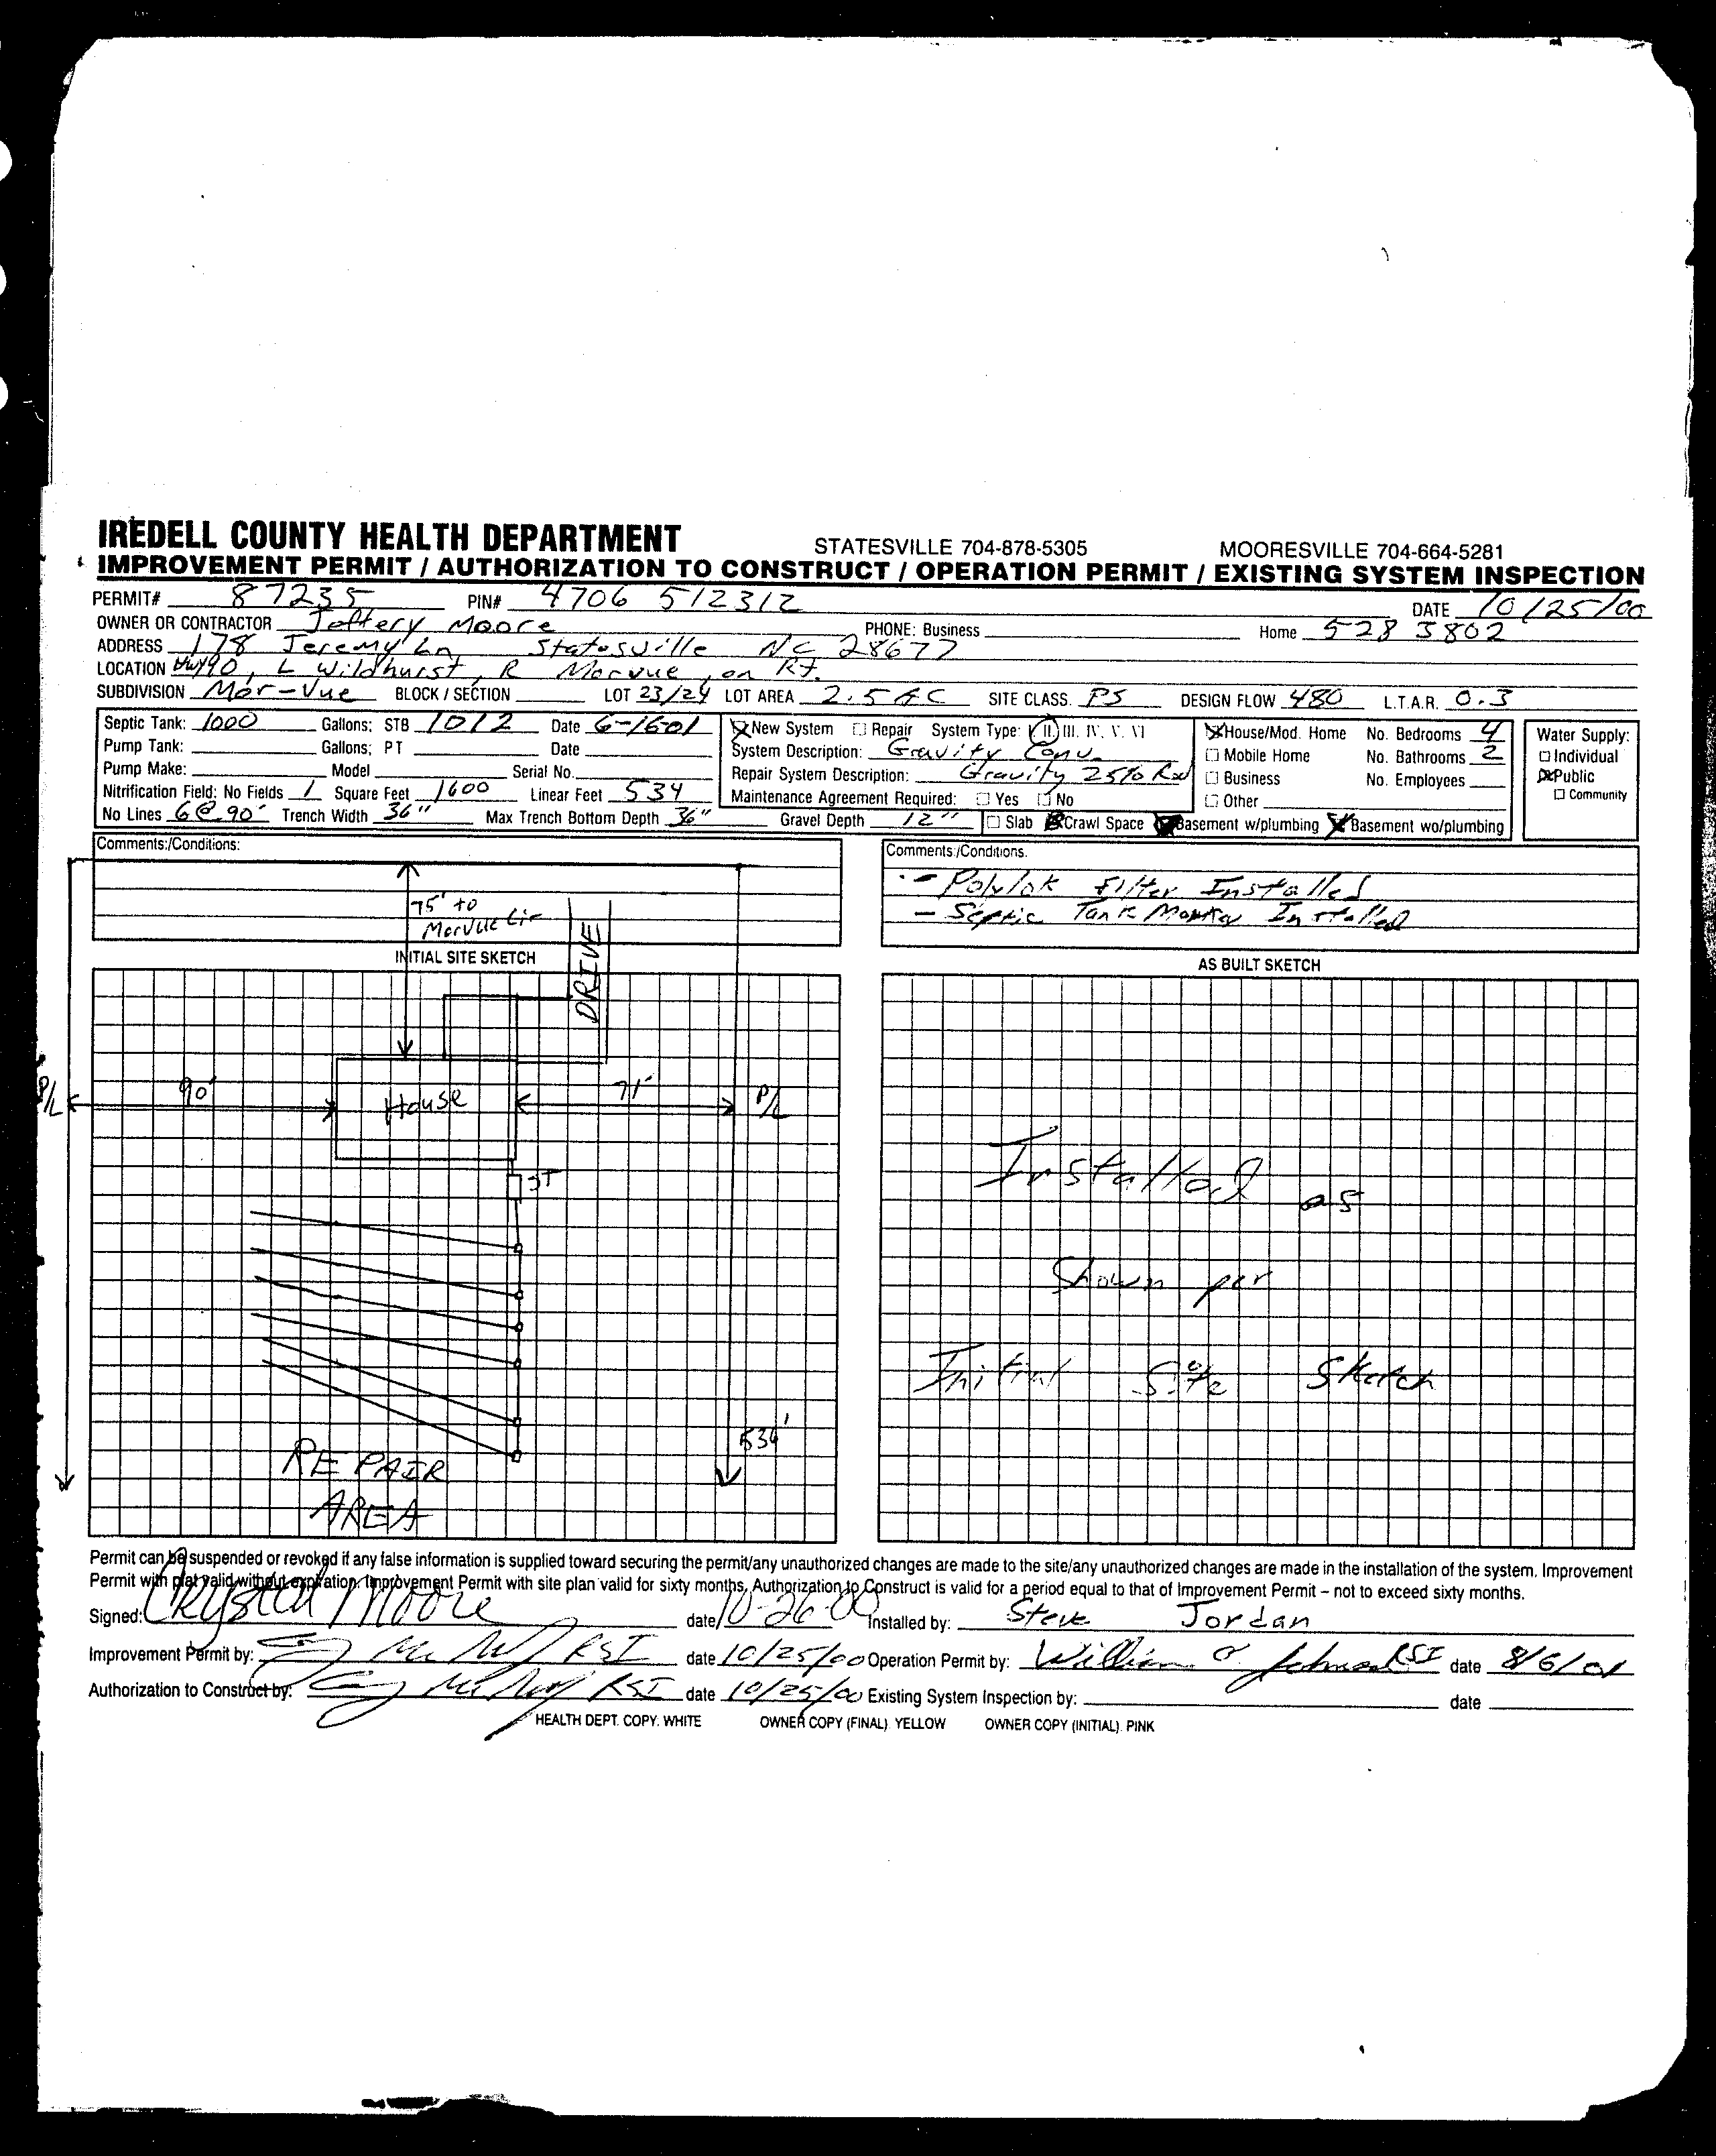 IREDELL COUNTY HEALTH DEPARTMENT STATESVILLE 704-878-5305 MOORESVILLE 704-664-5281
IMPROVEMENT PERMIT / AUTHORIZATION TO CONSTRUCT / OPERATION PERMIT / EXISTING SYSTEM INSPECTION
PERMIT# 87235 PIN# 4706 512312 DATE 10/25/00
OWNER OR CONTRACTOR Jeffery Moore PHONE: Business Home 528 3802
ADDRESS 178 Jeremy Ln Statesville NC 28677
LOCATION Hwy 90, L Wildhurst, R Morvue, on Rt.
SUBDIVISION Mor-Vue BLOCK / SECTION LOT 23/24 LOT AREA 2.5 AC SITE CLASS. PS DESIGN FLOW 480 L.T.A.R. 0.3
Septic Tank: 1000 Gallons; STB 1012 Date 6-1601
Pump Tank: Gallons; PT Date
Pump Make: Model Serial No.
Nitrification Field: No Fields 1 Square Feet 1600 Linear Feet 534
No Lines 6@90' Trench Width 36" Max Trench Bottom Depth 36" Gravel Depth 12"
New System Repair System Type: I II III. IV. V. VI
System Description: Gravity Conv.
Repair System Description: Gravity 25% Red
Maintenance Agreement Required: Yes No
Slab Crawl Space Basement w/plumbing Basement wo/plumbing
House/Mod. Home No. Bedrooms 4
Mobile Home No. Bathrooms 2
Business No. Employees
Other
Water Supply:
Individual
Public
Community
Comments:/Conditions:
75' to
Morvue Cir
DRIVE
INITIAL SITE SKETCH
P/L 90' House 71' P/L
ST
534'
REPAIR
AREA
Comments:/Conditions.
- Polylok Filter Installed
- Septic Tank Marker Installed
AS BUILT SKETCH
Installed as
Shown per
Initial Site Sketch
Permit can be suspended or revoked if any false information is supplied toward securing the permit/any unauthorized changes are made to the site/any unauthorized changes are made in the installation of the system. Improvement
Permit with plat valid without expiration. Improvement Permit with site plan valid for sixty months, Authorization to Construct is valid for a period equal to that of Improvement Permit – not to exceed sixty months.
Signed: Crystal Moore date 10-26-00 Installed by: Steve Jordan
Improvement Permit by: RSI date 10/25/00 Operation Permit by: William RSI date 8/6/01
Authorization to Construct by: RSI date 10/25/00 Existing System Inspection by: date
HEALTH DEPT. COPY. WHITE OWNER COPY (FINAL). YELLOW OWNER COPY (INITIAL). PINK